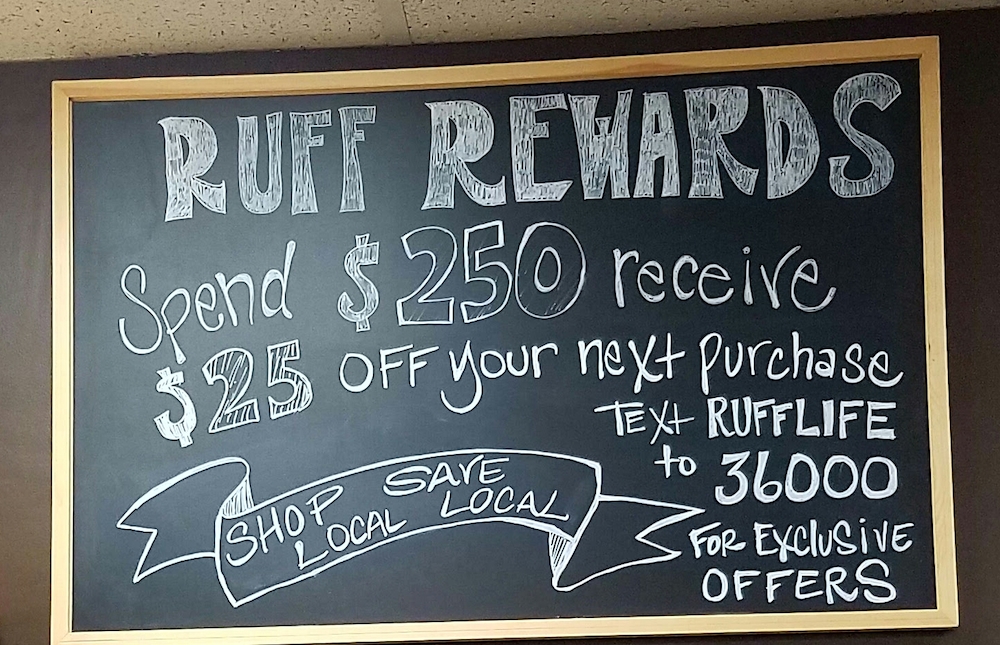 RUFF REWARDS
Spend $250 receive
$25 OFF your next purchase
TEXT RUFFLIFE
to 36000
FOR EXCLUSIVE
OFFERS
SHOP LOCAL
SAVE LOCAL